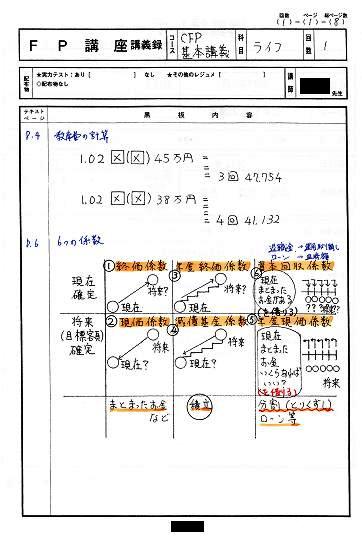 回数 ページ 総ページ数
(1)-(1)-(8)
FP講座 講義録
コース CFP 基本講義
科目 ライフ
回数 1
配布物 ★実力テスト:あり [ ] なし ★その他のレジュメ [ ]
◇配布物なし
講師 先生
テキストページ 黒板内容
P.4 教育費の計算
1.02 × (×) 45万円 =
=
=
3回 47.754
1.02 × (×) 38万円 =
=
=
=
4回 41.132
P.6 6つの係数
ローン →
①終価係数 ③年金終価係数 ⑥資本回収係数
現在確定
現在 将来?
現在 将来?
現在
まとまった
お金がある
(を借りる)
将来
(目標額)
確定
②現価係数 ④減債基金係数 ⑤年金現価係数
現在? 将来
現在? 将来
現在
まとまった
お金
いくらあれば
いい?
(を借りる)
将来
まとまったお金
など
積立
分割(とりくずし)
ローン等